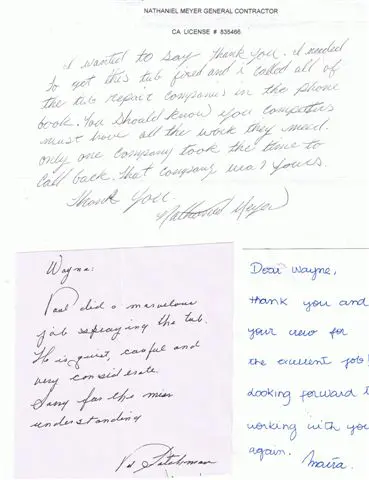 NATHANIEL MEYER GENERAL CONTRACTOR
CA LICENSE # 835466
I wanted to say thank you. I needed
to get this tub fixed and I called all of
the tub repair companies in the phone
book. You should know you competitors
must have all the work they need.
only one company took the time to
call back. That company was yours.
Thank You.
Nathaniel Meyer
Wayne:
Paul did a marvelous
job spraying the tub.
He is quiet, careful and
very considerate.
Sorry for the miss
understanding
Dear Wayne,
thank you and
your crew for
the excellent job!
Looking forward t
working with you
again.
Maira